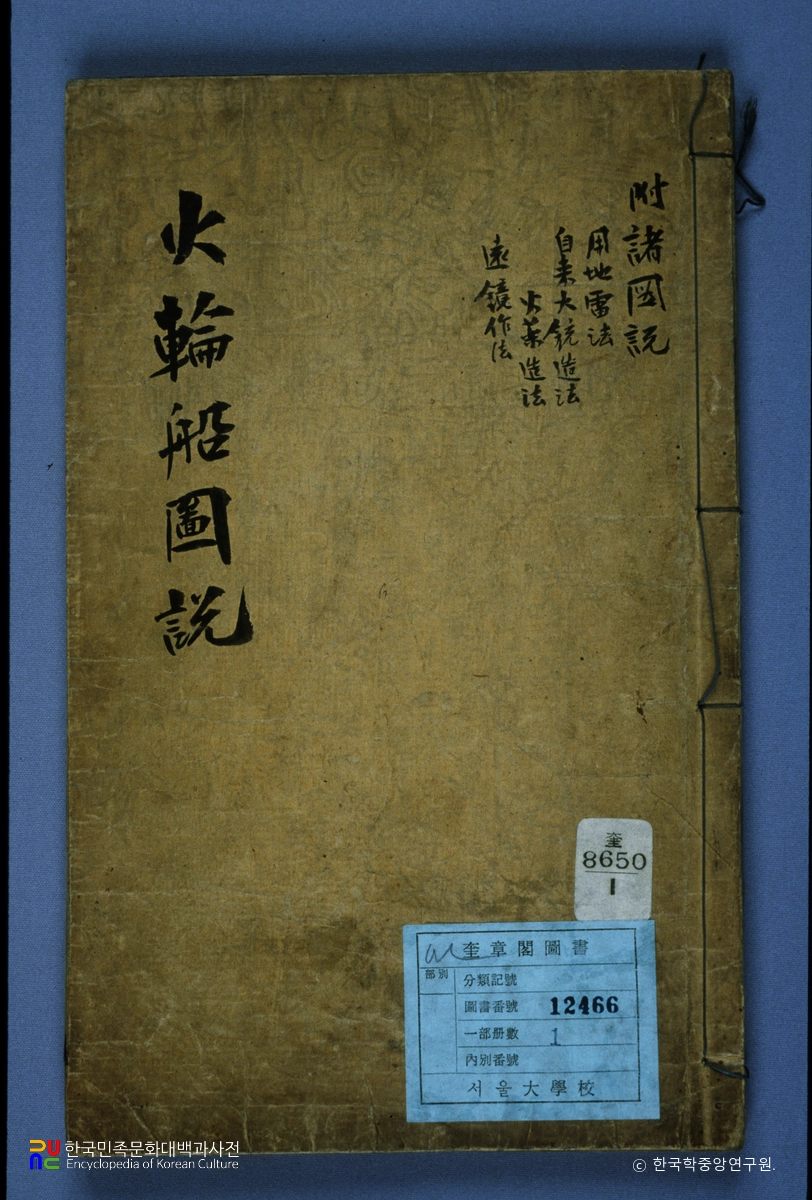 附諸國説
用地雷法
自來火銃造法
火藥造法
遠鏡作法
火輪船圖説
奎
8650
1
奎章閣圖書
部別
分類記號
圖書番號 12466
一部册數 1
內別番號
서울大學校
한국민족문화대백과사전
Encyclopedia of Korean Culture
ⓒ 한국학중앙연구원.